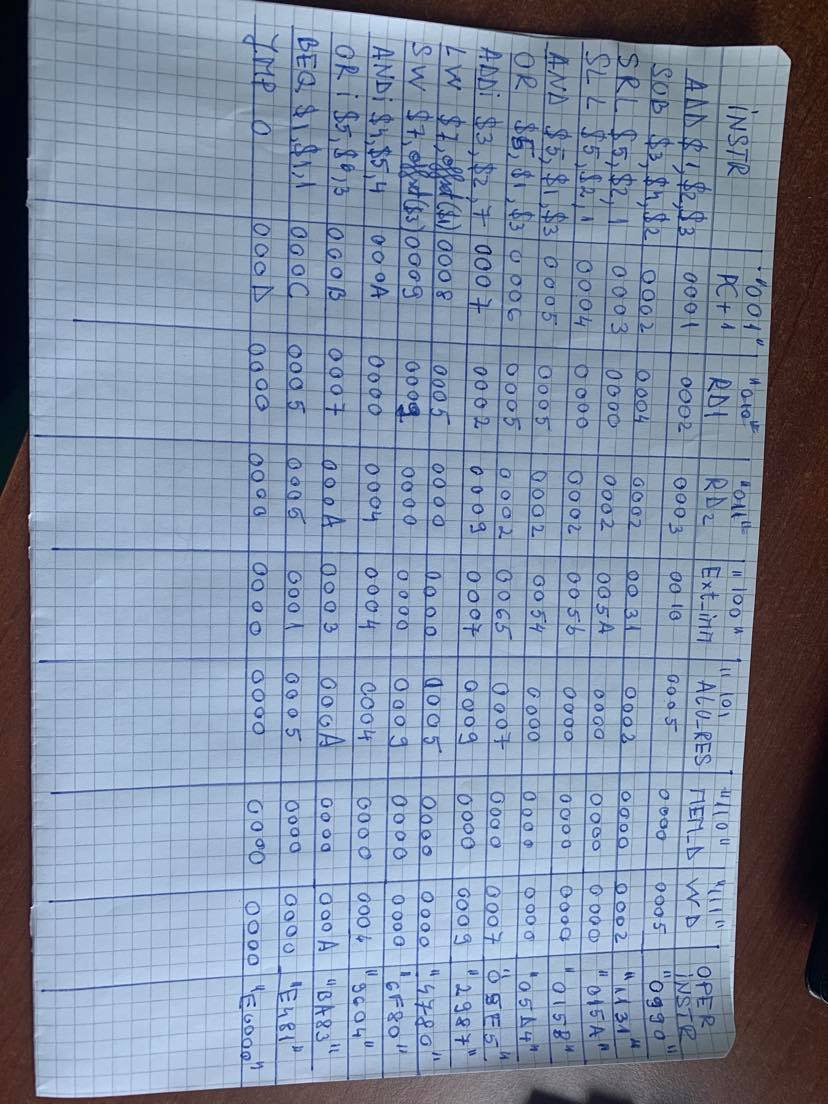 "001" "010" "011" "100" "101 "110" "111"
INSTR PC+1 RD1 RD2 Ext_imm ALU-RES MEM_D WD OPER INSTR
ADD $1,$2,$3 0001 0002 0003 0010 0005 0000 0005 "0990"
SUB $3,$4,$2 0002 0004 0002 0031 0002 0000 0002 "1131"
SRL $5,$2,1 0003 0000 0002 005A 0000 0000 0000 "015A"
SLL $5,$2,1 0004 0000 0002 005b 0000 0000 0000 "015B"
AND $5,$1,$3 0005 0005 0002 0054 0000 0000 0000 "05D4"
OR $6,$1,$3 0006 0005 0002 0065 0007 0000 0007 "05E5"
ADDi $3,$2,7 0007 0002 0009 0007 0009 0000 0009 "2987"
LW $7,offset($1) 0008 0005 0000 0000 0005 0000 0000 "4780"
SW $7,offset($3) 0009 0009 0000 0000 0009 0000 0000 "6F80"
ANDi $4,$5,4 000A 0000 0004 0004 0004 0000 0004 "9604"
ORi $5,$6,3 000B 0007 000A 0003 000A 0000 000A "BA83"
BEQ $1,$1,1 000C 0005 0005 0001 0005 0000 0000 "E481"
JMP 0 000D 0000 0000 0000 0000 0000 0000 "E000"